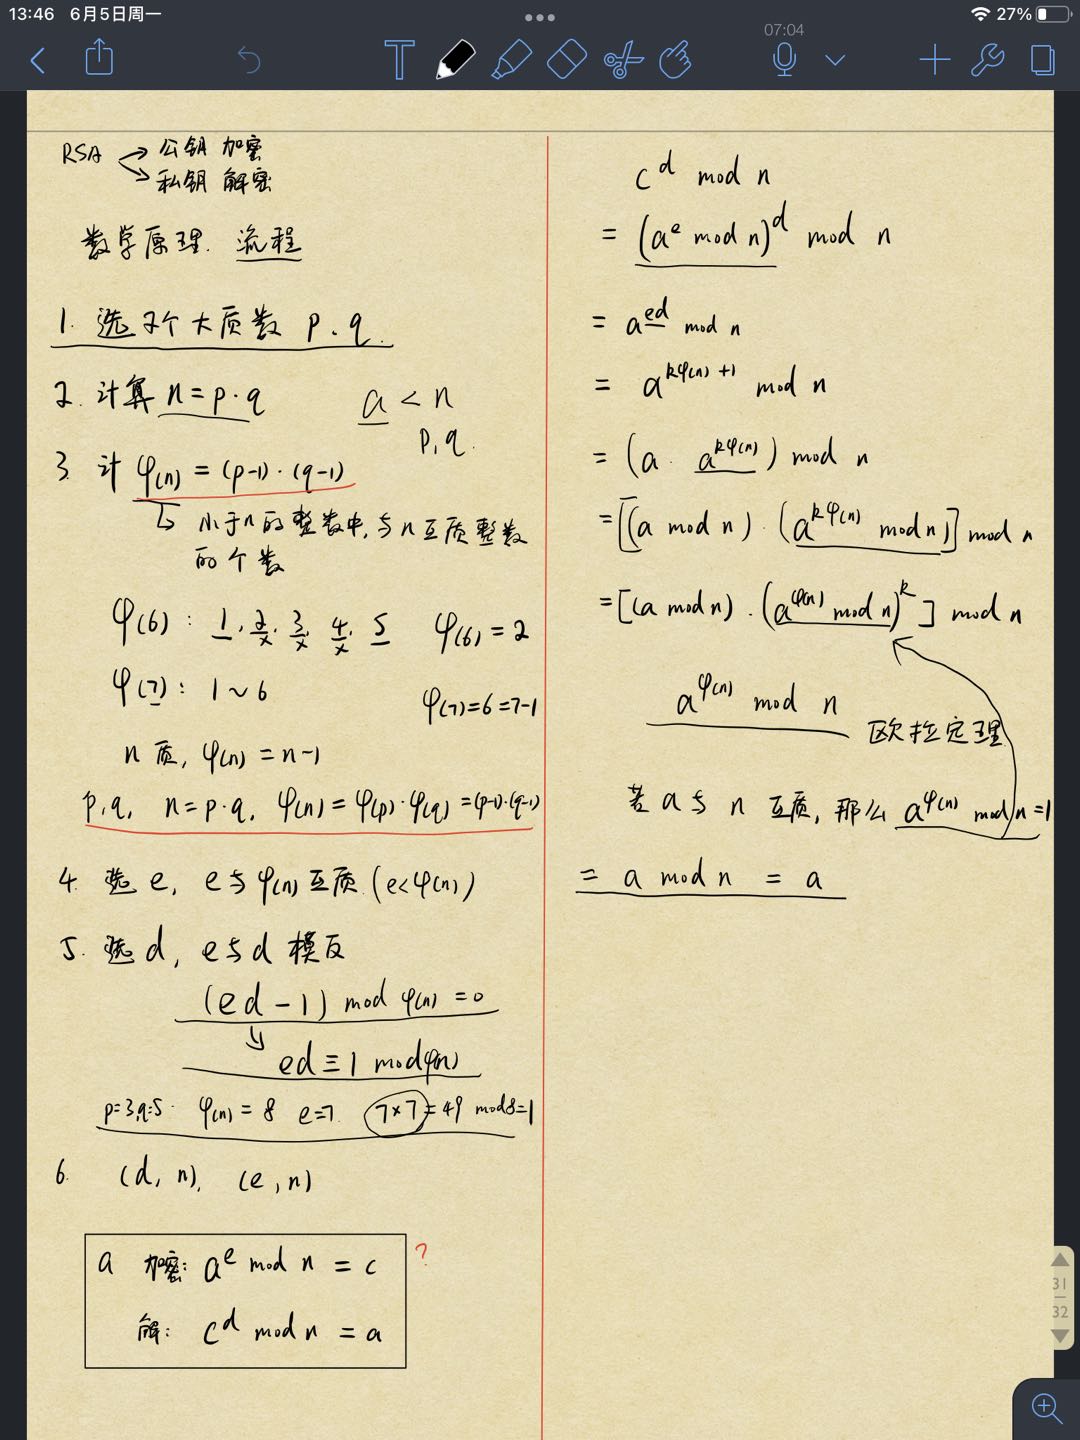 13:46 6月5日周一
27%
07:04
RSA → 公钥 加密
→ 私钥 解密
数学原理. 流程
1. 选2个大质数 p.q.
2. 计算 n=p·q
a < n
p,q.
3. 计 φ(n) = (p-1)·(q-1)
↳ 小于n的整数中,与n互质整数
的个数
φ(6): 1, 2, 3, 4, 5 φ(6)=2
× × ×
φ(7): 1~6
φ(7)=6=7-1
n 质, φ(n)=n-1
p,q, n=p·q, φ(n)=φ(p)·φ(q)=(p-1)·(q-1)
4. 选e, e与φ(n)互质.(e<φ(n))
5. 选d, e与d 模反
(ed-1) mod φ(n)=0
↘ ed≡1 modφ(n)
p=3,q=5. φ(n)=8 e=7. 7×7=49 mod8=1
6. (d,n), (e,n)
a 加密: a^e mod n = c
?
解: c^d mod n = a
c^d mod n
= (a^e mod n)^d mod n
= a^{ed} mod n
= a^{kφ(n)+1} mod n
= (a · a^{kφ(n)}) mod n
= [(a mod n)·(a^{kφ(n)} mod n)] mod n
= [(a mod n)·(a^{φ(n)} mod n)^k] mod n
a^{φ(n)} mod n
欧拉定理
若a与n互质,那么 a^{φ(n)} mod n=1
= a mod n = a
31
32